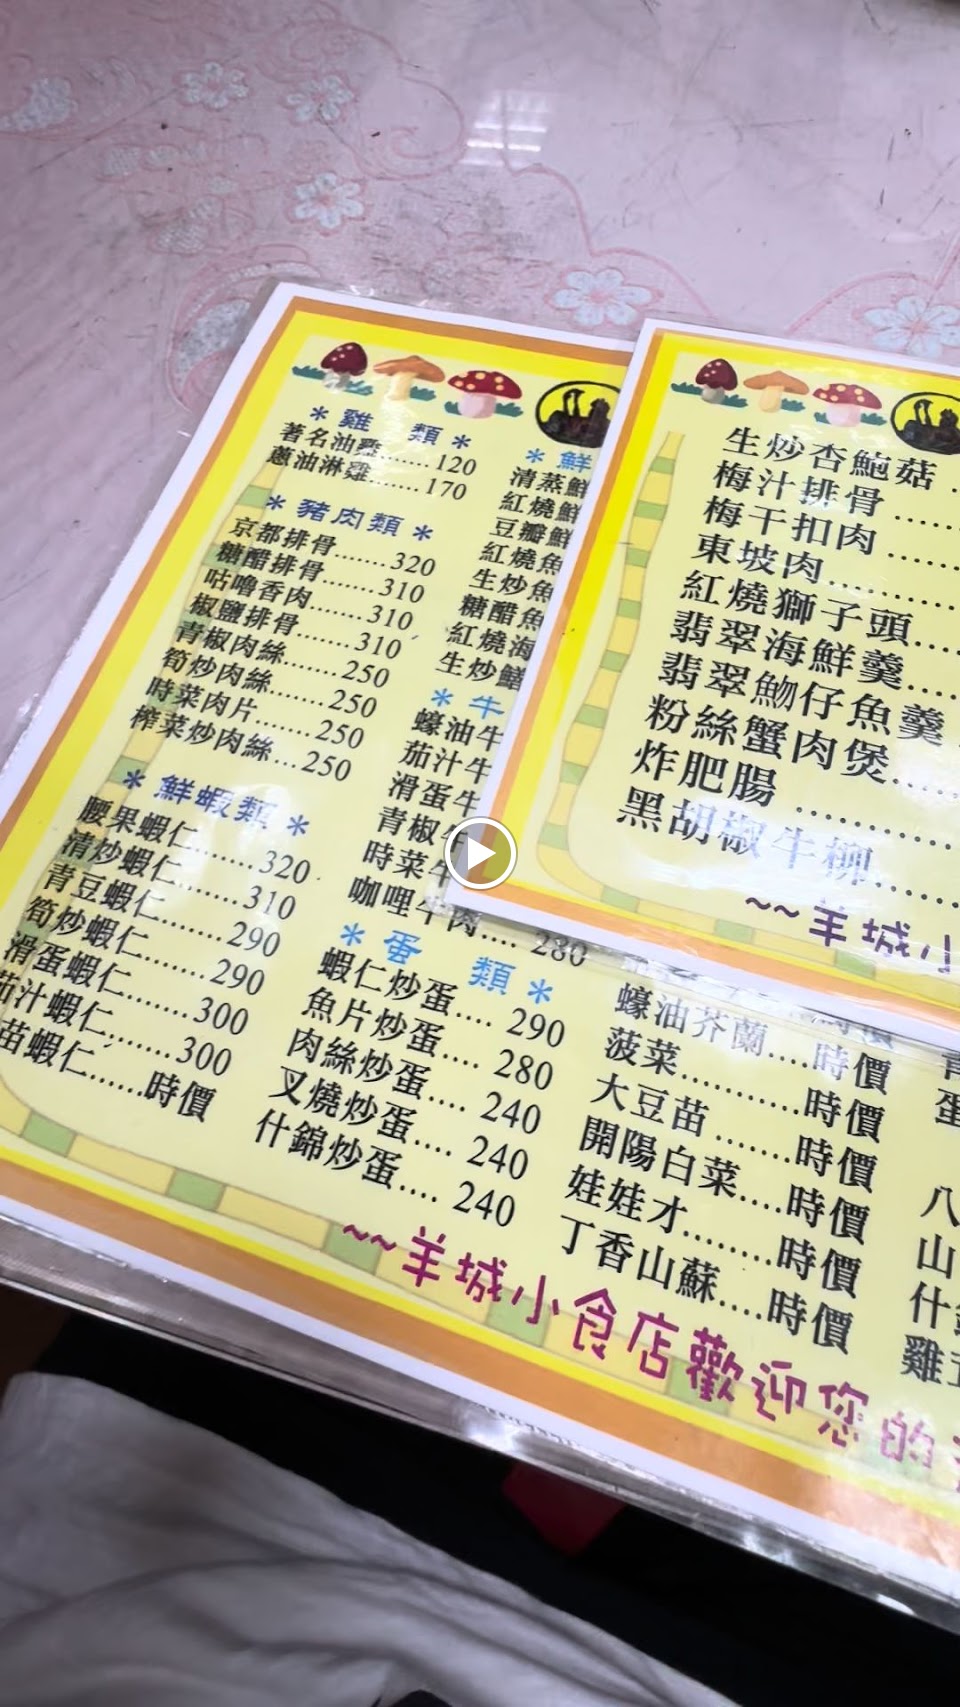 ＊雞　類＊
著名油雞.......120
蔥油淋雞.......170
＊豬肉類＊
京都排骨......320
糖醋排骨......310
咕嚕香肉......310
椒鹽排骨......310
青椒肉絲......250
筍炒肉絲......250
時菜肉片......250
榨菜炒肉絲...250
＊鮮蝦類＊
腰果蝦仁.......320
清炒蝦仁.......310
青豆蝦仁.......290
筍炒蝦仁.......290
滑蛋蝦仁.......300
茄汁蝦仁.......300
苗蝦仁......時價
＊鮮
清蒸鮮
紅燒鮮
豆瓣鮮
紅燒魚
生炒魚
糖醋魚
紅燒海
生炒鱔
＊牛
蠔油牛
茄汁牛
滑蛋牛
青椒牛
時菜牛
咖哩牛肉.... 280
＊蛋　類＊
蝦仁炒蛋.... 290
魚片炒蛋.... 280
肉絲炒蛋.... 240
叉燒炒蛋.... 240
什錦炒蛋.... 240
蠔油芥蘭....時價
菠菜...........時價
大豆苗.......時價
開陽白菜....時價
娃娃才........時價
丁香山蘇....時價
八
山
什
雞
~~羊城小食店歡迎您的
生炒杏鮑菇
梅汁排骨
梅干扣肉
東坡肉
紅燒獅子頭
翡翠海鮮羹
翡翠魩仔魚羹
粉絲蟹肉煲
炸肥腸
黑胡椒牛柳
~~羊城小